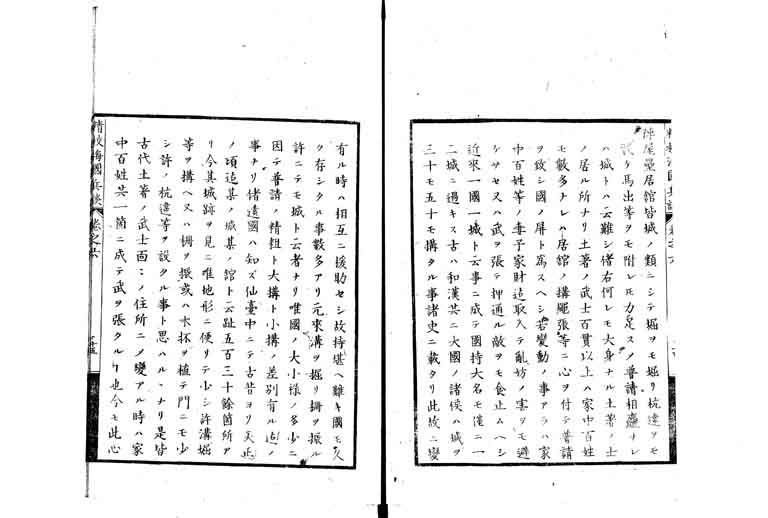 陣屋壘居館皆城ノ類ニシテ堀ヲモ堀リ杭違ヲモ
ケ馬出等ヲモ附レ𪜈力足スノ普請相應ナレ
ハ城トハ云難シ偖右何レモ大身ナル土著ノ士
ノ居ル所ナリ土著ノ武士百貫以上ハ家中百姓
モ數多ナレハ居館ノ構繩張等ニ心ヲ付テ普請
ヲ致シ國ノ屏ト爲スヘシ若變動ノ事アラハ家
中百姓等ノ妻子家財迄取入テ亂妨ノ害ヲモ避
ケサセ又ハ武ヲ張テ押通ル敵ヲモ食止ムヘシ
近來一國一城ト云事ニ成テ國持大名モ僅ニ一
二城ニ過キス古ハ和漢共ニ大國ノ諸侯ハ城ヲ
三十モ五十モ構タル事諸史ニ載タリ此故ニ變
有ル時ハ相互ニ援助セシ故持堪ヘ難キ國モ久
ク存シタル事數多アリ元來溝ヲ掘リ柵ヲ振ル
許ニテモ城ト云者ナリ唯國ノ大小様ノ多少ニ
因テ普請ノ精粗ト大構ト小構ノ差別有ル迄ノ
事ナリ偖遠國ハ知ズ仙臺中ニテ古昔ヨリ天正
ノ頃迄某ノ城某ノ館ト云趾五百三十餘箇所ア
リ今其城跡ヲ見ニ唯地形ニ便リテ少シ許溝堀
等ヲ構ヘ又ハ柵ヲ振或ハ木抔ヲ植テ門ニモ少
シ許ノ杭違等ヲ設タル事ト思ハルヽナリ是皆
古代土著ノ武士面々ノ住所ニノ變アル時ハ家
中百姓共一箇ニ成テ武ヲ張タル也今モ此心
精校海國兵談
卷之六